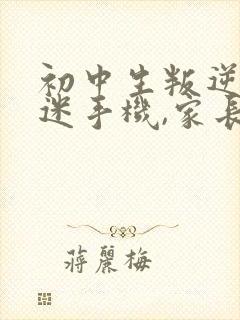 初中生叛逆
迷手機,家長
蔣麗梅